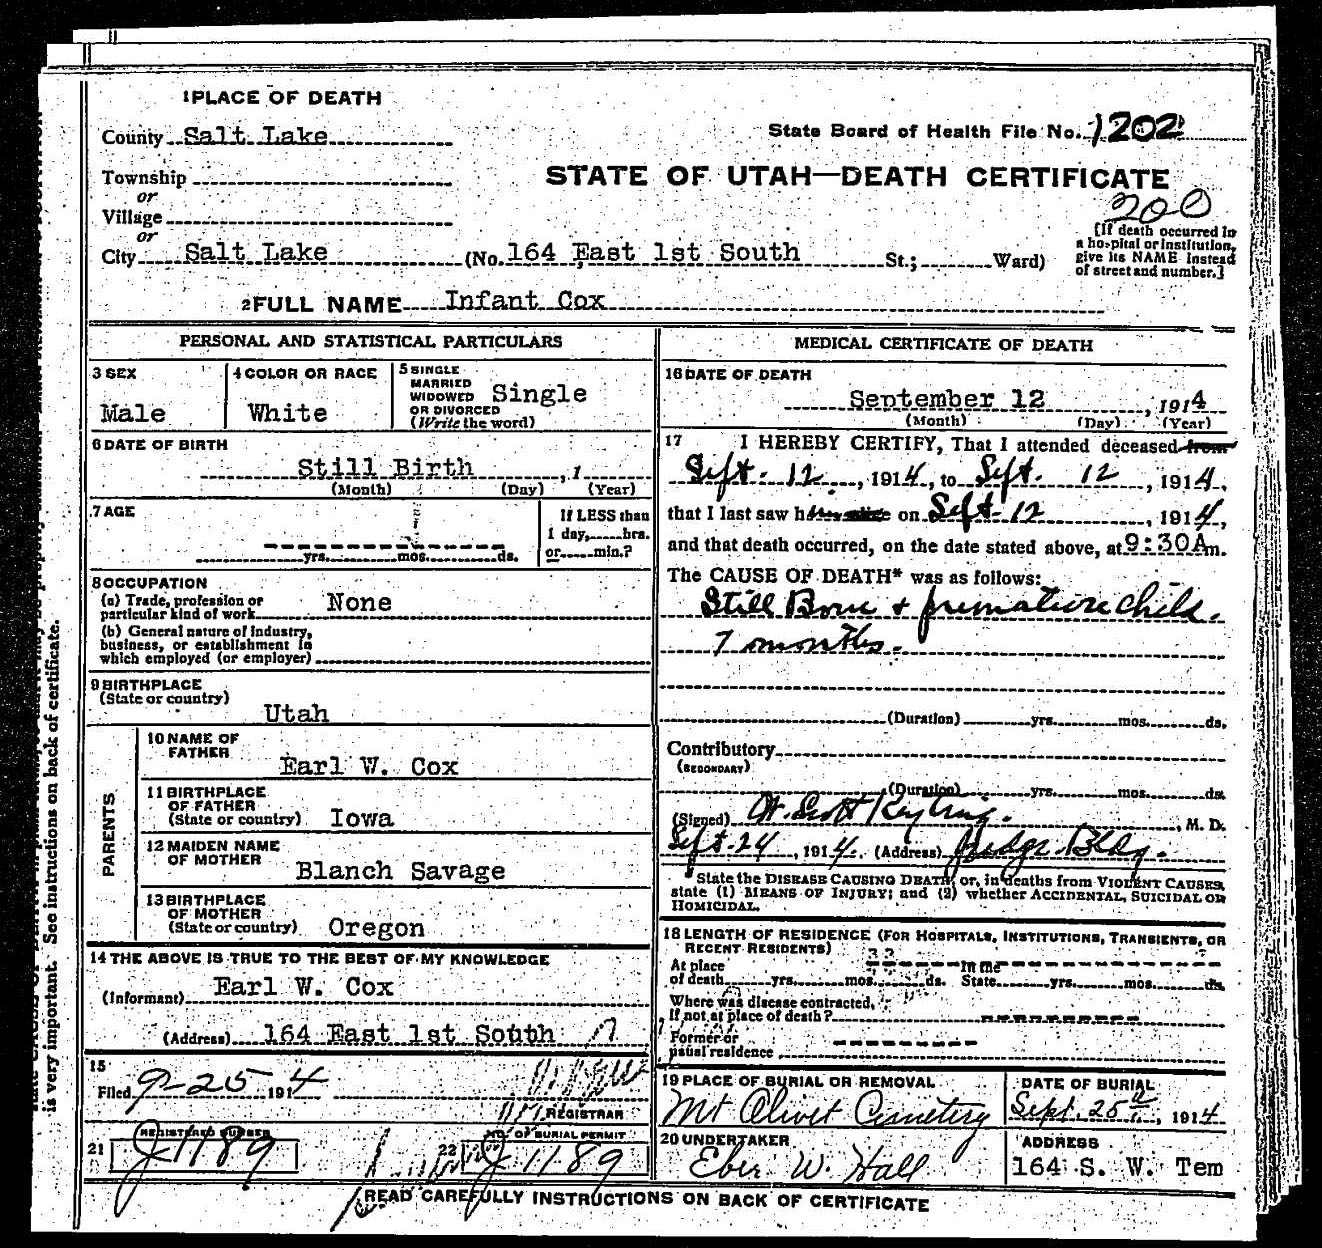 1 PLACE OF DEATH
County Salt Lake
State Board of Health File No. 1202
Township
or
Village
or
STATE OF UTAH—DEATH CERTIFICATE
200
[If death occurred in
a hospital or institution,
give its NAME instead
of street and number.]
City Salt Lake (No. 164 East 1st South St.; Ward)
2 FULL NAME Infant Cox
PERSONAL AND STATISTICAL PARTICULARS
3 SEX
Male
4 COLOR OR RACE
White
5 SINGLE
MARRIED
WIDOWED
OR DIVORCED
(Write the word)
Single
6 DATE OF BIRTH
Still Birth , 1
(Month) (Day) (Year)
7 AGE
yrs. mos. ds.
If LESS than
1 day, hrs.
or min.?
8 OCCUPATION
(a) Trade, profession or
particular kind of work None
(b) General nature of industry,
business, or establishment in
which employed (or employer)
9 BIRTHPLACE
(State or country)
Utah
PARENTS
10 NAME OF
FATHER
Earl W. Cox
11 BIRTHPLACE
OF FATHER
(State or country) Iowa
12 MAIDEN NAME
OF MOTHER
Blanch Savage
13 BIRTHPLACE
OF MOTHER
(State or country) Oregon
14 THE ABOVE IS TRUE TO THE BEST OF MY KNOWLEDGE
(Informant) Earl W. Cox
(Address) 164 East 1st South
15
Filed 9-25 1914
REGISTRAR
21 REGISTERED NUMBER
J1189
22 NO. OF BURIAL PERMIT
J1189
MEDICAL CERTIFICATE OF DEATH
16 DATE OF DEATH
September 12 , 1914
(Month) (Day) (Year)
17 I HEREBY CERTIFY, That I attended deceased from
Sept. 12 , 1914, to Sept. 12 , 1914,
that I last saw h on Sept. 12 , 1914,
and that death occurred, on the date stated above, at 9:30A m.
The CAUSE OF DEATH* was as follows:
Still Born + premature child.
7 months.
(Duration) yrs. mos. ds.
Contributory
(SECONDARY)
(Duration) yrs. mos. ds.
(Signed) W. Scott Keyting. , M. D.
Sept. 24 , 1914. (Address) Judge Bldg.
State the DISEASE CAUSING DEATH, or, in deaths from VIOLENT CAUSES,
state (1) MEANS OF INJURY; and (2) whether ACCIDENTAL, SUICIDAL OR
HOMICIDAL.
18 LENGTH OF RESIDENCE (FOR HOSPITALS, INSTITUTIONS, TRANSIENTS, OR
RECENT RESIDENTS)
At place
of death yrs. mos. ds.
In the
State yrs. mos. ds.
Where was disease contracted,
if not at place of death?
Former or
usual residence
19 PLACE OF BURIAL OR REMOVAL
Mt Olivet Cemetery
DATE OF BURIAL
Sept. 25th, 1914
20 UNDERTAKER
Eber W. Hall
ADDRESS
164 S. W. Tem
READ CAREFULLY INSTRUCTIONS ON BACK OF CERTIFICATE
is very important. See instructions on back of certificate.